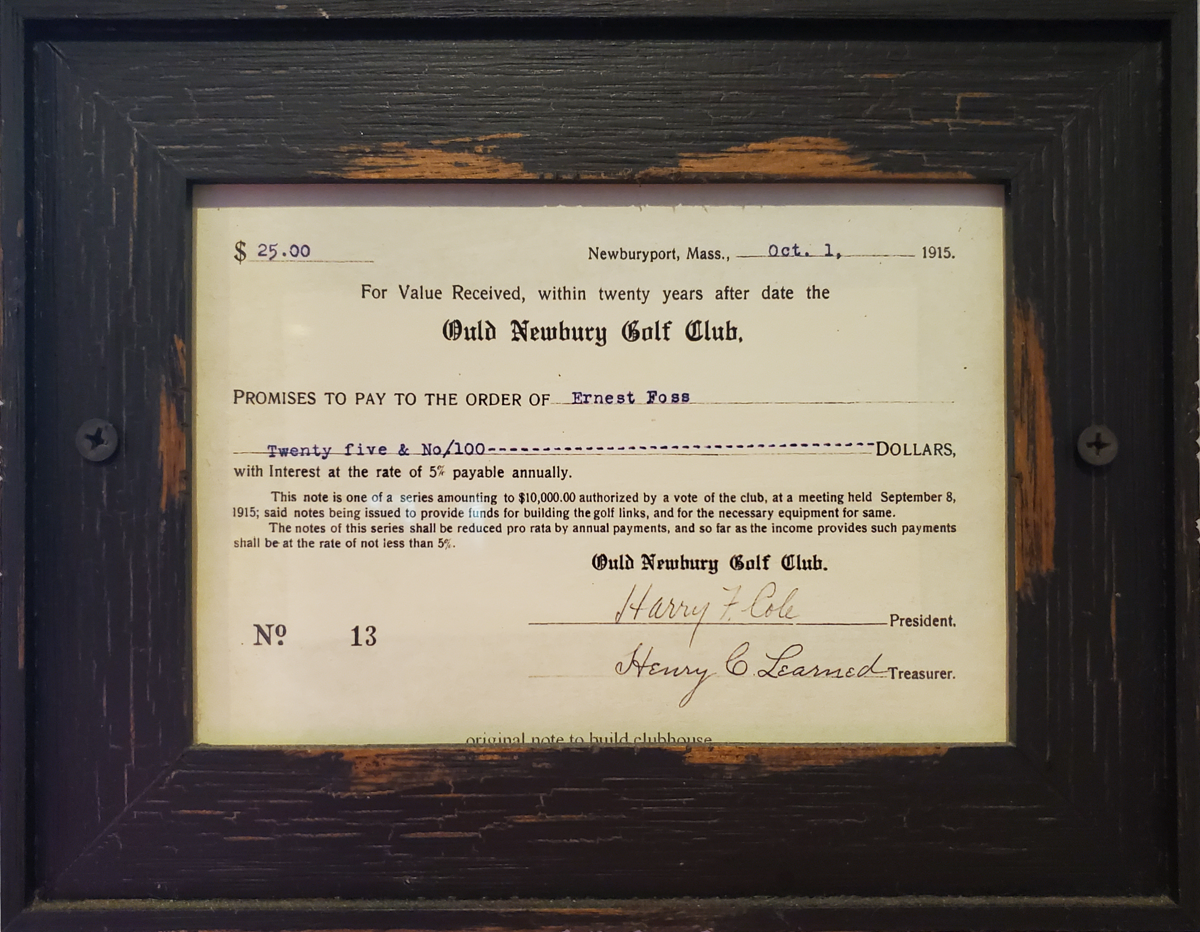 $ 25.00 Newburyport, Mass., Oct. 1, 1915.
For Value Received, within twenty years after date the
Ould Newbury Golf Club,
PROMISES TO PAY TO THE ORDER OF Ernest Foss
Twenty five & No/100------------------------------------------DOLLARS,
with Interest at the rate of 5% payable annually.
This note is one of a series amounting to $10,000.00 authorized by a vote of the club, at a meeting held September 8,
1915; said notes being issued to provide funds for building the golf links, and for the necessary equipment for same.
The notes of this series shall be reduced pro rata by annual payments, and so far as the income provides such payments
shall be at the rate of not less than 5%.
Ould Newbury Golf Club.
Harry F. Cole President.
Nº 13
Henry C. Learned Treasurer.
original note to build clubhouse